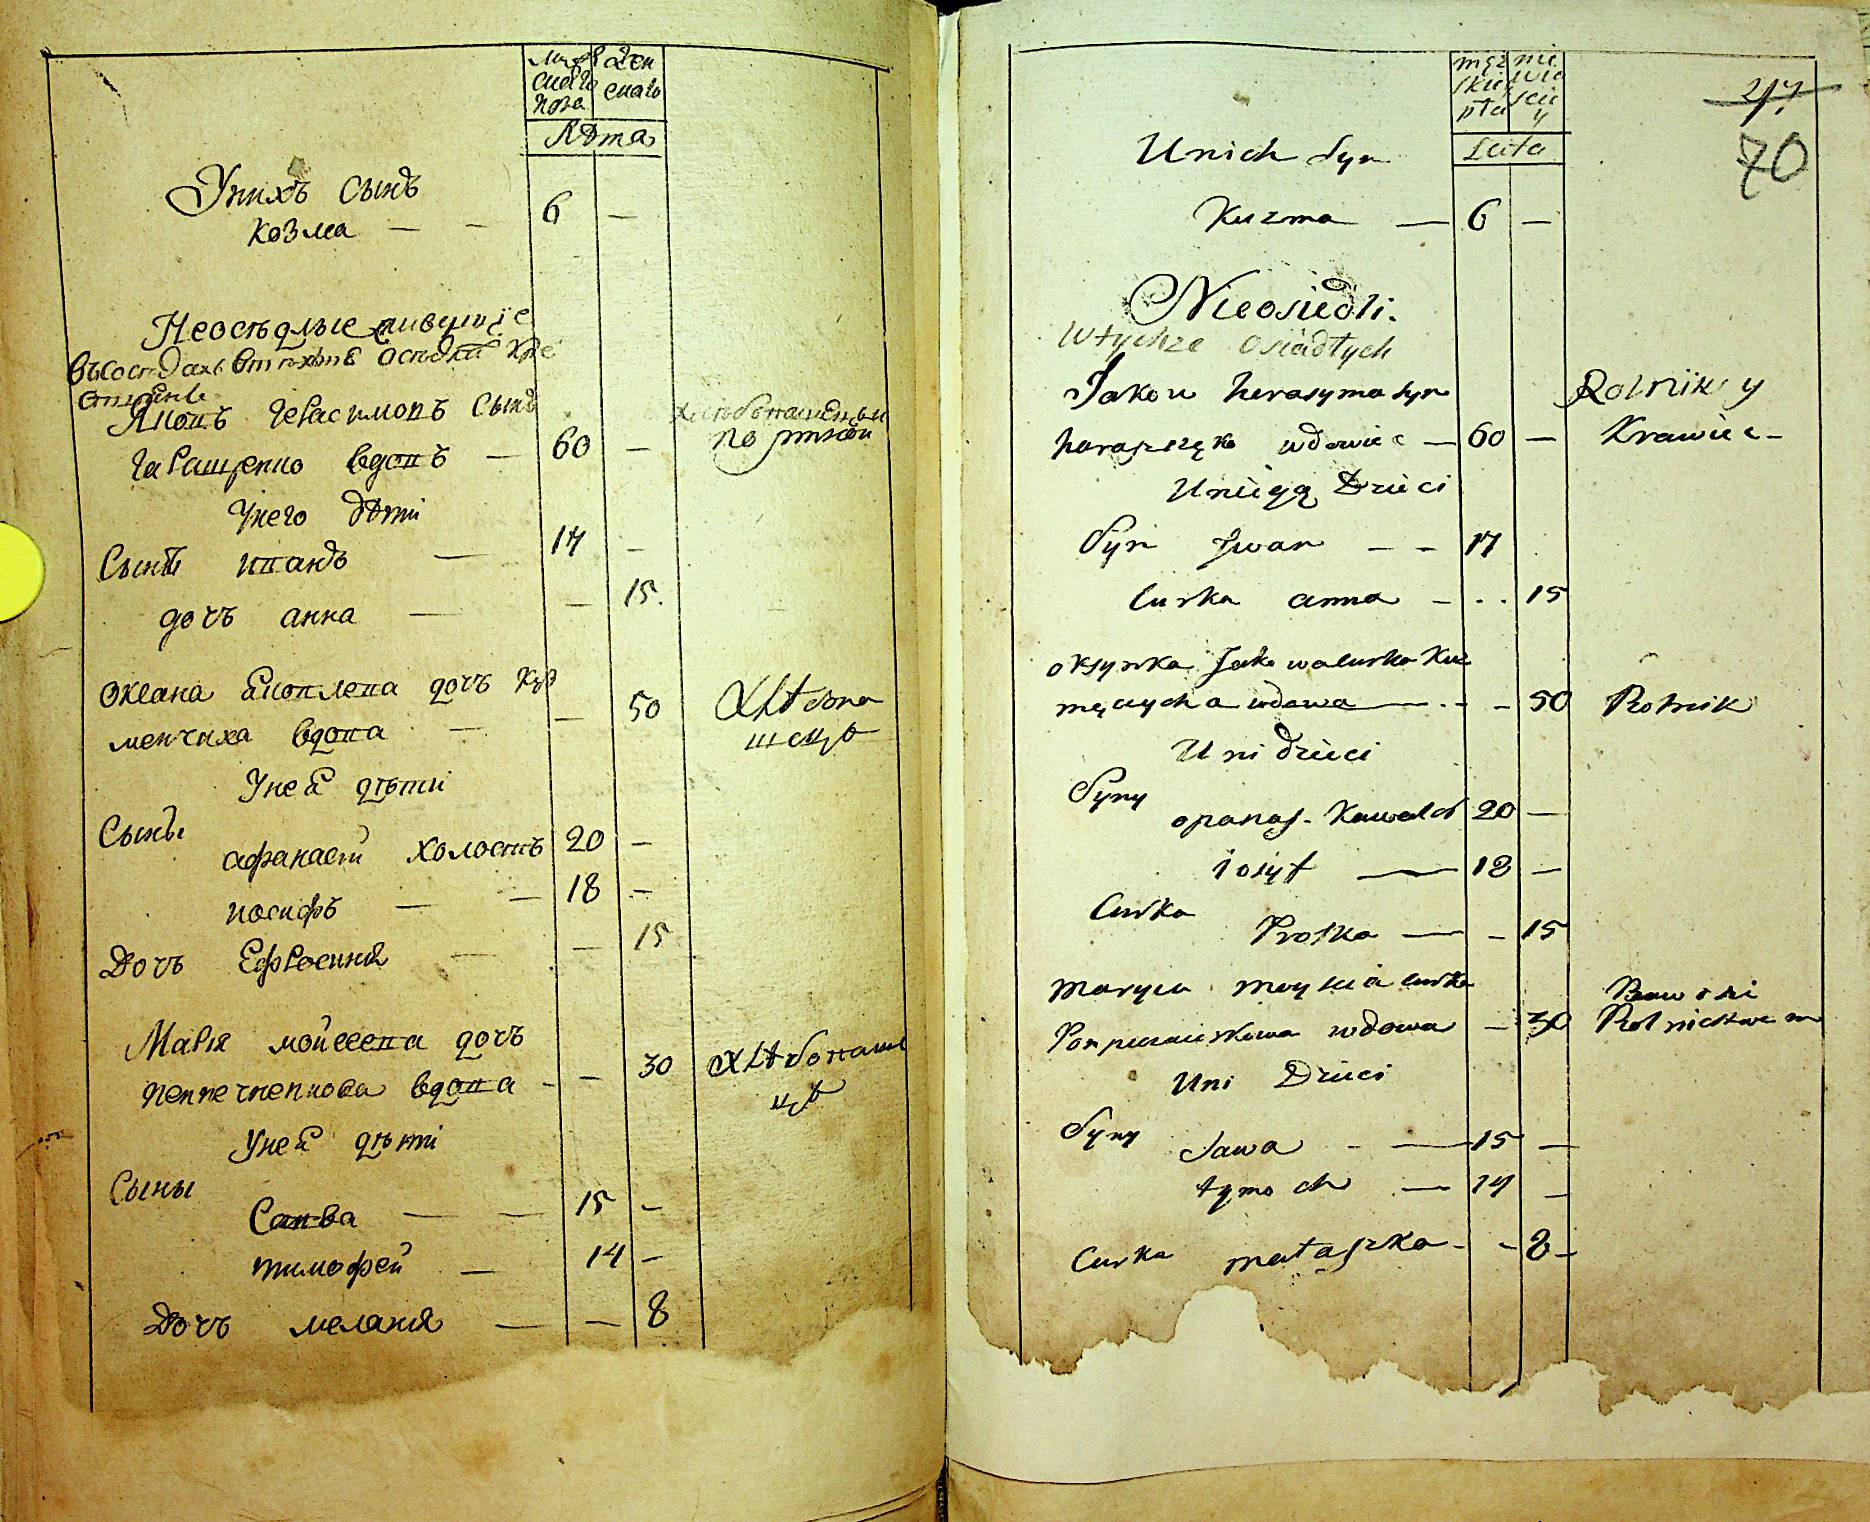 мужескаго пола
женскаго
Лѣта
Унихъ Сынъ
козма — — 6 —
Неосѣдлые живущіе
въсосѣдахъ втѣхже осѣдлы
Яковъ герасимовъ Сынъ
гаращенко вдовъ — 60 — хлѣбопашець и портной
Унего дѣти
Сынъ иванъ — 17 —
дочъ анна — — 15.
Оксана Яковлева дочъ куз
менчиха вдова — — 50 Хлѣбопа
шецъ
Унеѣ дѣти
Сыны
афанасей холостъ 20 —
иосифъ — — 18 —
Дочъ Ефросиния — — 15
Марія мойсеева дочъ
вдова - — 30 хлѣбопаше
цъ
Унеѣ дѣти
Сыны
Савва — — 15 —
тимофей — 14 —
Дочъ мелания — — 8
męz skiey płci
nie wie sciey
Leita
217
70
Unich Syn
Kuzma — 6 —
Nieosiedli.
Wtychze osiadłych
Jakow herasyma syn Rolnik y
haraszczęko wdowiec — 60 — Krawiec -
Uniego Dzieci
Syn Jwan — - 17
Curka anna - . . 15
oksynka Jakowa curka Kuz
męczycha wdowa — . - - 50 Rolnik
Uni dzieci
Syny
opanas - Kawaler 20 —
iosyf — 18 —
Curka
Proska — - 15
Maryia moysieia curka Bawi sie
wdowa - 30 Rolnictwem
Uni Dzieci
Syny
Sawa - — 15 —
tymoch — 14 —
Curka małaszka - - 8 -